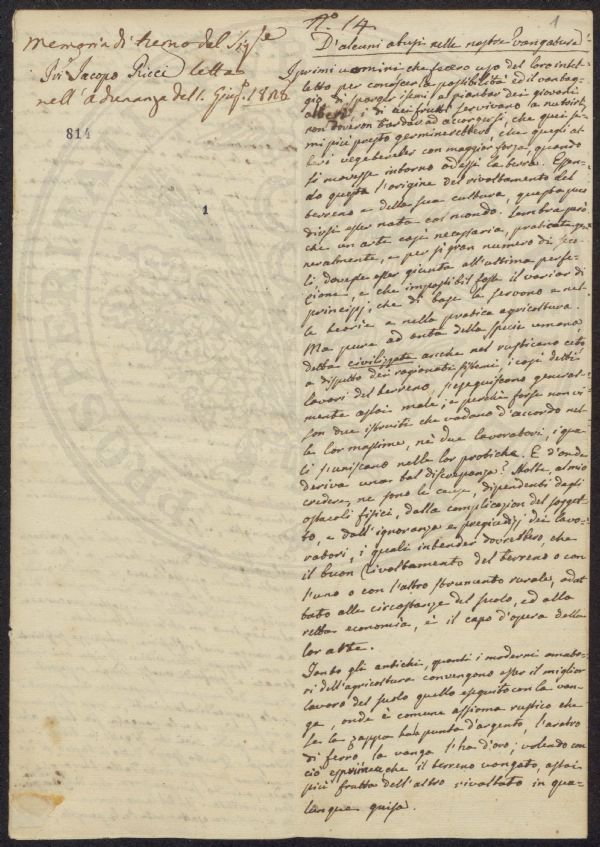 Memoria di turno del Sig.re
Pri.e Jacopo Ricci letta
nell'adunanza del 1. Giug.o 18
814
1
N.o 14
1
D'alcuni abusi nelle nostre Vangature
I primi uomini che fecero uso del loro intel-
letto per conoscer la possibilità ed il vantag-
gio di sparger i semi, al piantar dei giovani
alberi, i di cui frutti servivano a nutrirli,
non doveron tardar ad accorgersi, che quei se-
mi più presto germinerebbero, che quegli al-
beri vegeterebber con maggior forza, quando
si movesse intorno ad essi la terra. Essen-
do questa l'origine del rivoltamento del
terreno e della sua cultura, questa può
dirsi esser nata col mondo. Sembra però
che un arte così necessaria, praticata ge-
neralmente, e per sì gran numero di seco-
li, dovesse esser giunta all'ultima perfe-
zione, e che impossibil fosse il variar di
principj, che di base le servono e nel-
la teoria e nella pratica agricoltura.
Ma pure ad onta della specie umana,
detta civilizzata anche nel rusticano ceto
a dispetto dei ragionati sistemi, i così detti
lavori del terreno, s'eseguiscono general-
mente assai male; e perchè forse non vi
son due istruiti che vadano d'accordo nel-
le lor massime, nè due lavoratori, i qua-
li s'uniscano nelle lor pratiche. E d'onde
deriva una tal discrepanza? Molte, al mio
credere, ne sono le cause, dipendenti dagli
ostacoli fisici, dalla complicazion del sogget-
to, e dall'ignoranza e pregiudizj dei lavo-
ratori, i quali intender dovrebbero, che
il buon rivoltamento del terreno o con
l'uno o con l'altro strumento rurale, adat-
tato alle circostanze del suolo, ed alla
retta economia, è il capo d'opera della
lor arte.
Tanto gli antichi, quanti i moderni amato-
ri dell'agricoltura convengono esser il miglior
lavoro del suolo quello eseguito con la van-
ga, onde è comune assioma rustico che
se la zappa ha punta d'argento, l'aratro
di ferro, la vanga l'ha d'oro; volendo con
ciò esprimer che il terreno vangato, assai
più frutta dell'altro rivoltato in qua-
lunque guisa.